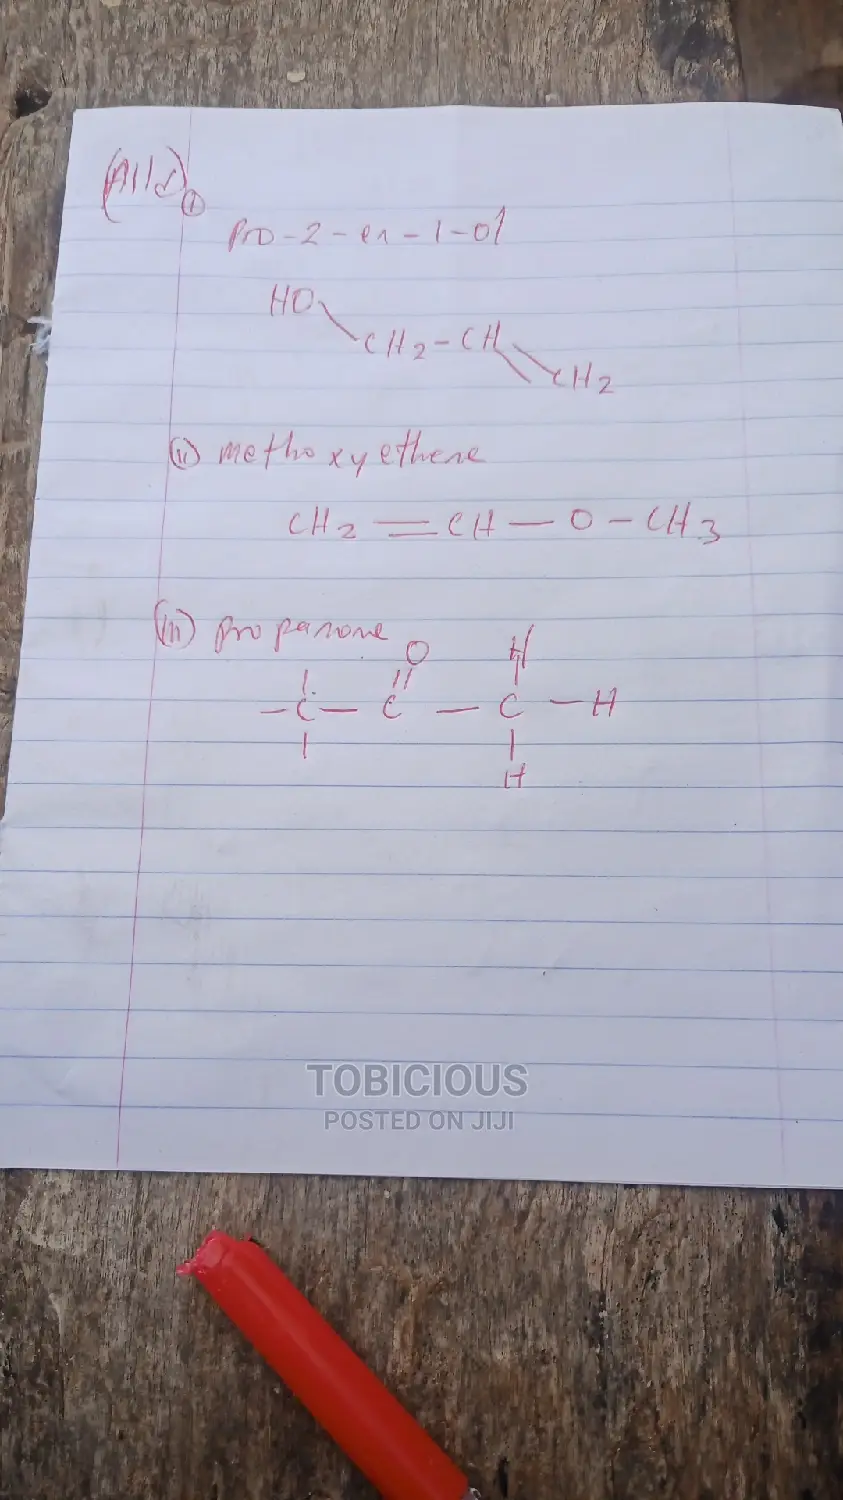 (i)
Pro-2-en-1-ol
HO
CH2-CH
CH2
(ii) methoxyethene
CH2=CH-O-CH3
(iii) propanone
O H
-C-C-C-H
H
TOBICIOUS
POSTED ON JIJI